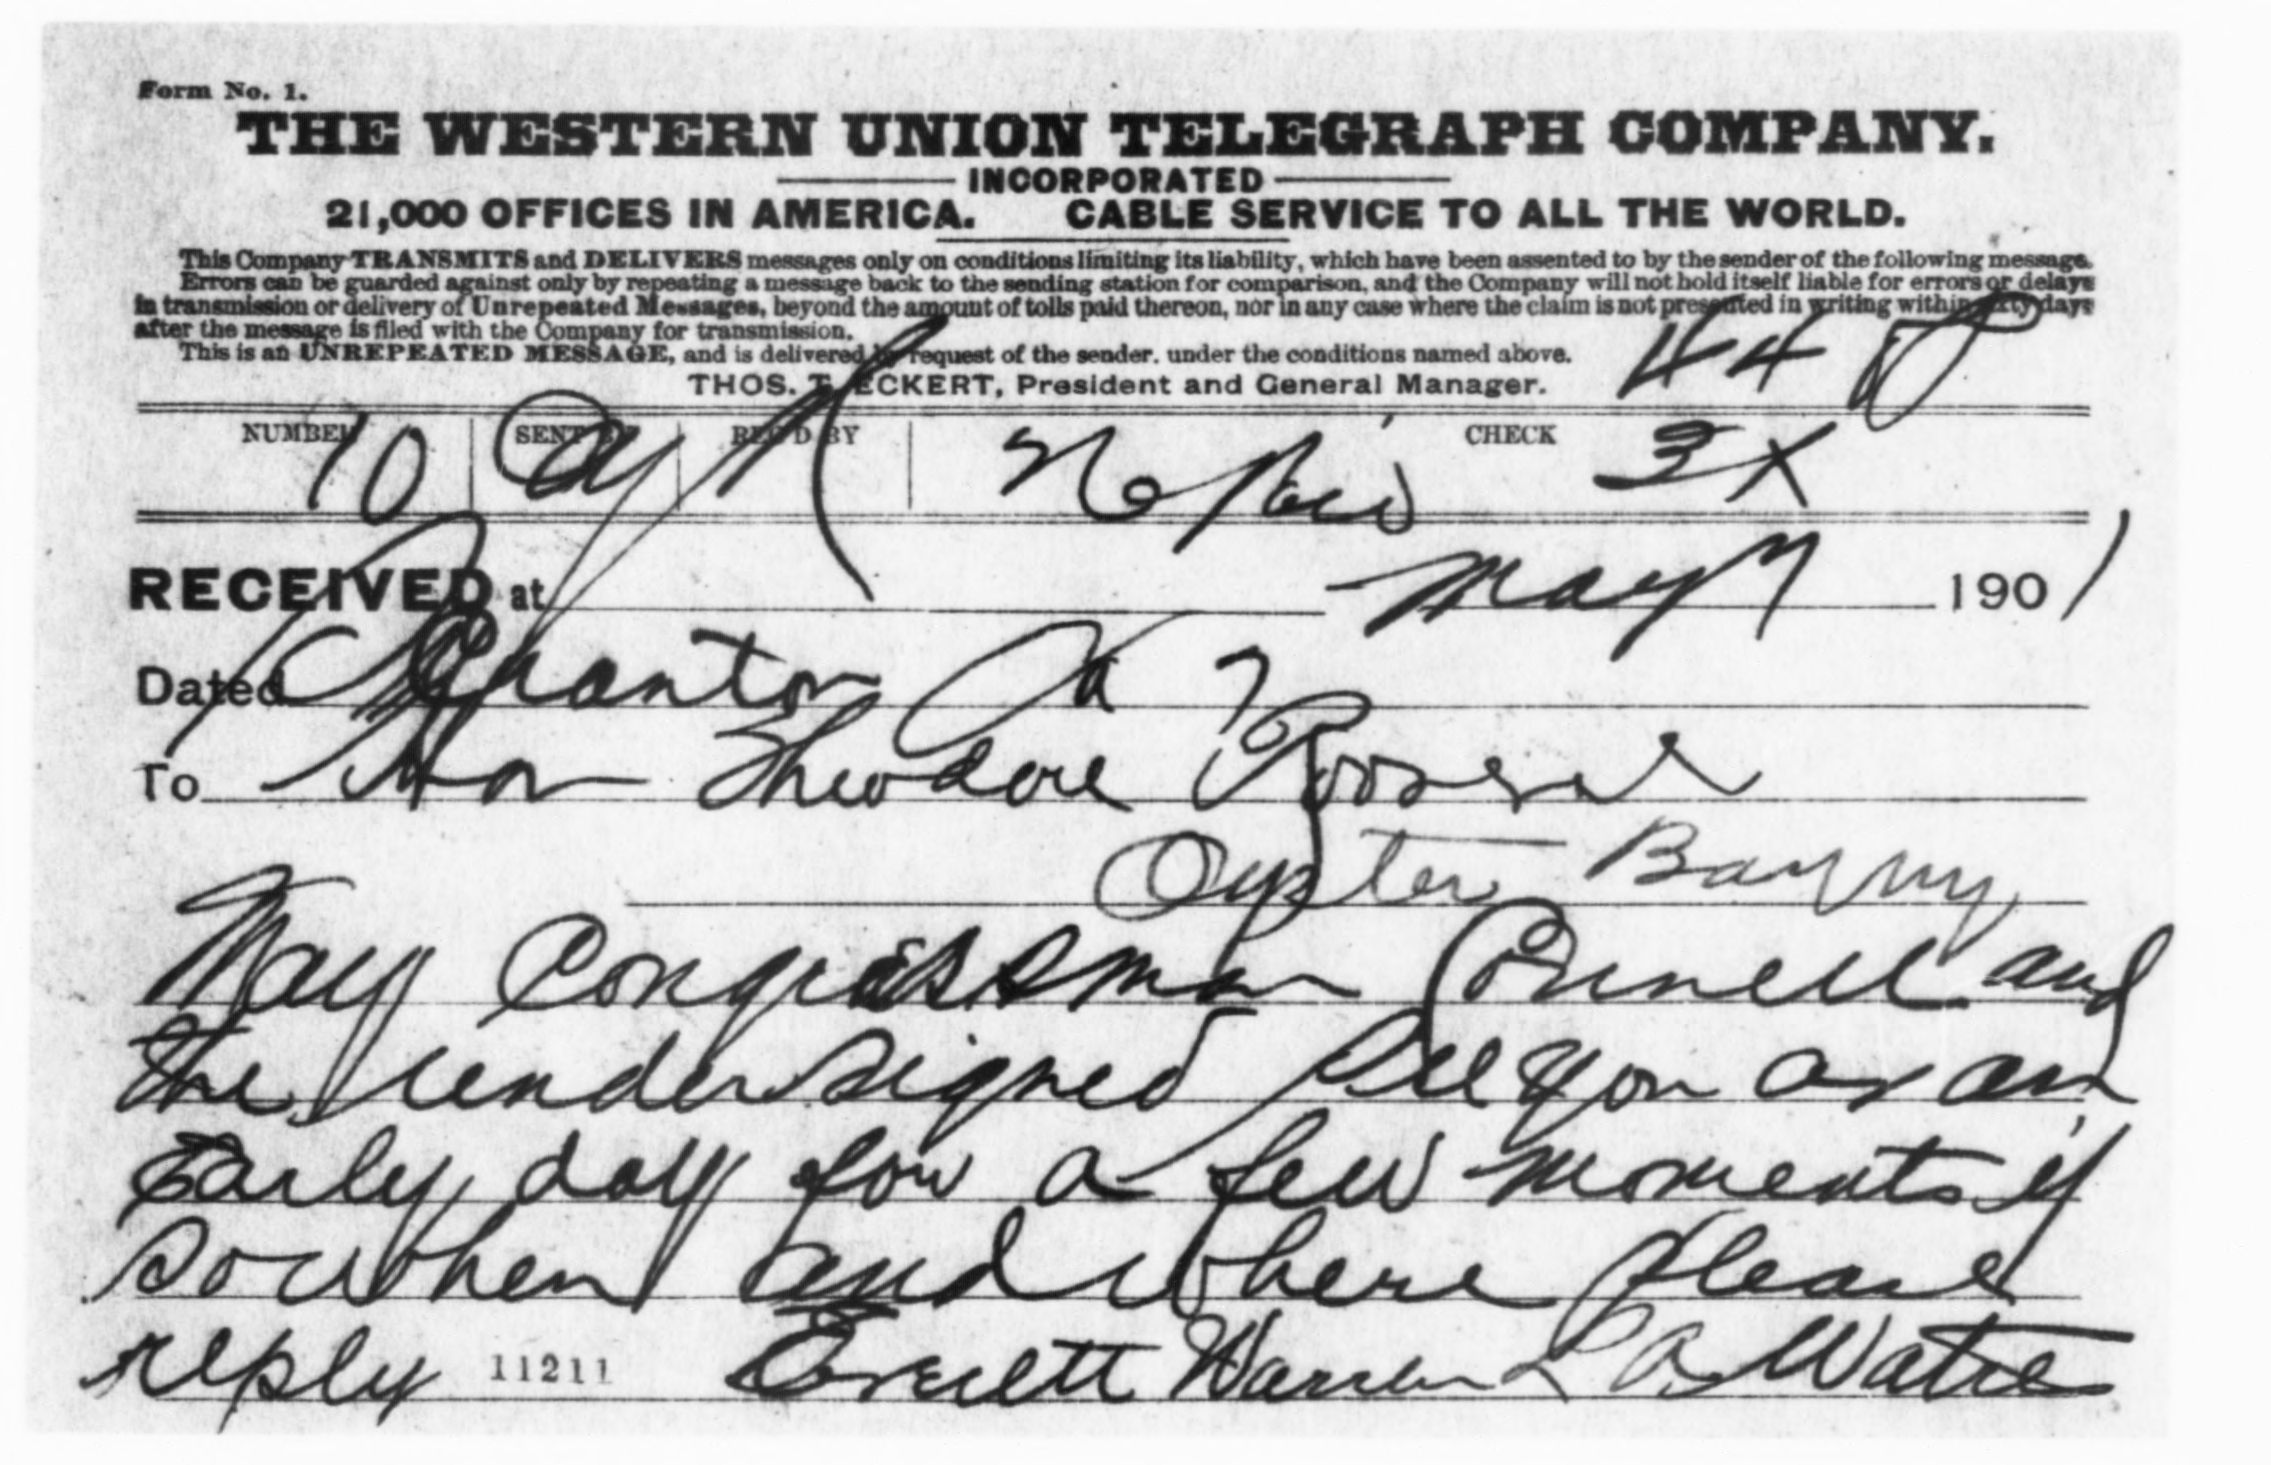 Form No. 1.
THE WESTERN UNION TELEGRAPH COMPANY.
INCORPORATED
21,000 OFFICES IN AMERICA. CABLE SERVICE TO ALL THE WORLD.
This Company TRANSMITS and DELIVERS messages only on conditions limiting its liability, which have been assented to by the sender of the following message.
Errors can be guarded against only by repeating a message back to the sending station for comparison, and the Company will not hold itself liable for errors or delays
in transmission or delivery of Unrepeated Messages, beyond the amount of tolls paid thereon, nor in any case where the claim is not presented in writing within sixty days
after the message is filed with the Company for transmission.
This is an UNREPEATED MESSAGE, and is delivered by request of the sender, under the conditions named above.
THOS. T. ECKERT, President and General Manager.
44
NUMBER SENT BY REC'D BY CHECK
10 3X
RECEIVED at May 7 1901
Dated Scranton Pa 7
To Hon Theodore Roosevelt
Oyster Bay NY
May Congressman Connell and
the undersigned see you at an
Early day for a few moments if
so when and where Please
reply 11211 Everett Warren L A Watres